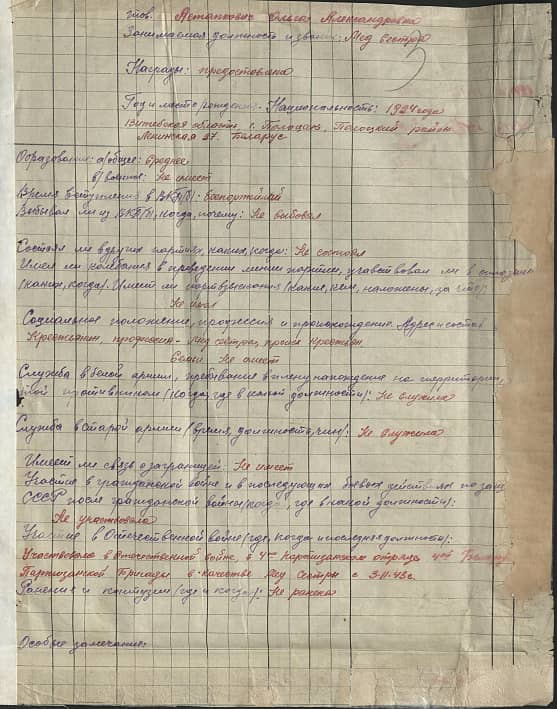 тов. Астапкович Ольга Александровна
Занимаемая должность и звание: Мед сестра
Награды: предоставлена
Год и место рождения. Национальность: 1924 года
Витебская область, г. Полацак, Полоцкий район
Ленинская 27. Беларус
Образование: а/общее: среднее
б/военное: Не имеет
Время вступления в ВКП/б/: беспортийная
Выбывал ли из ВКП/б/, когда, почему: Не выбовал
Состоял ли в других партиях, каких, когда: Не состоял
Имел ли колебания в проведении линии партии, участвовал ли в
/каких, когда/. Имеет ли партвзыскания /какие, кем, наложены, за что/:
Не имел
Социальное положение, профессия и происхождение. Адрес и состав
Крестьянка, профессия - мед сестра, происх крестьян.
Семьи Не имеет
Служба в белой армии, пребывание в плену нахождение на территории,
противником /когда, где в какой должности/: Не служила
Служба в старой армии /время, должность, чин/: Не служила
Имеет ли связь с заграницей: Не имеет
Участие в гражданской войне и в последующих боевых действиях по защ
СССР после гражданской войны /когда, где в какой должности/:
Не участвовала
Участие в Отечественной войне /где, когда и последняя должность/:
Участвовала в Отечественной войне, в 4м Партизанском отряде
Партизанской Бригады в качестве Мед Сестры с 3-11-43г.
Ранения и контузии /где и когда/: Не ранена
Особые замечания: